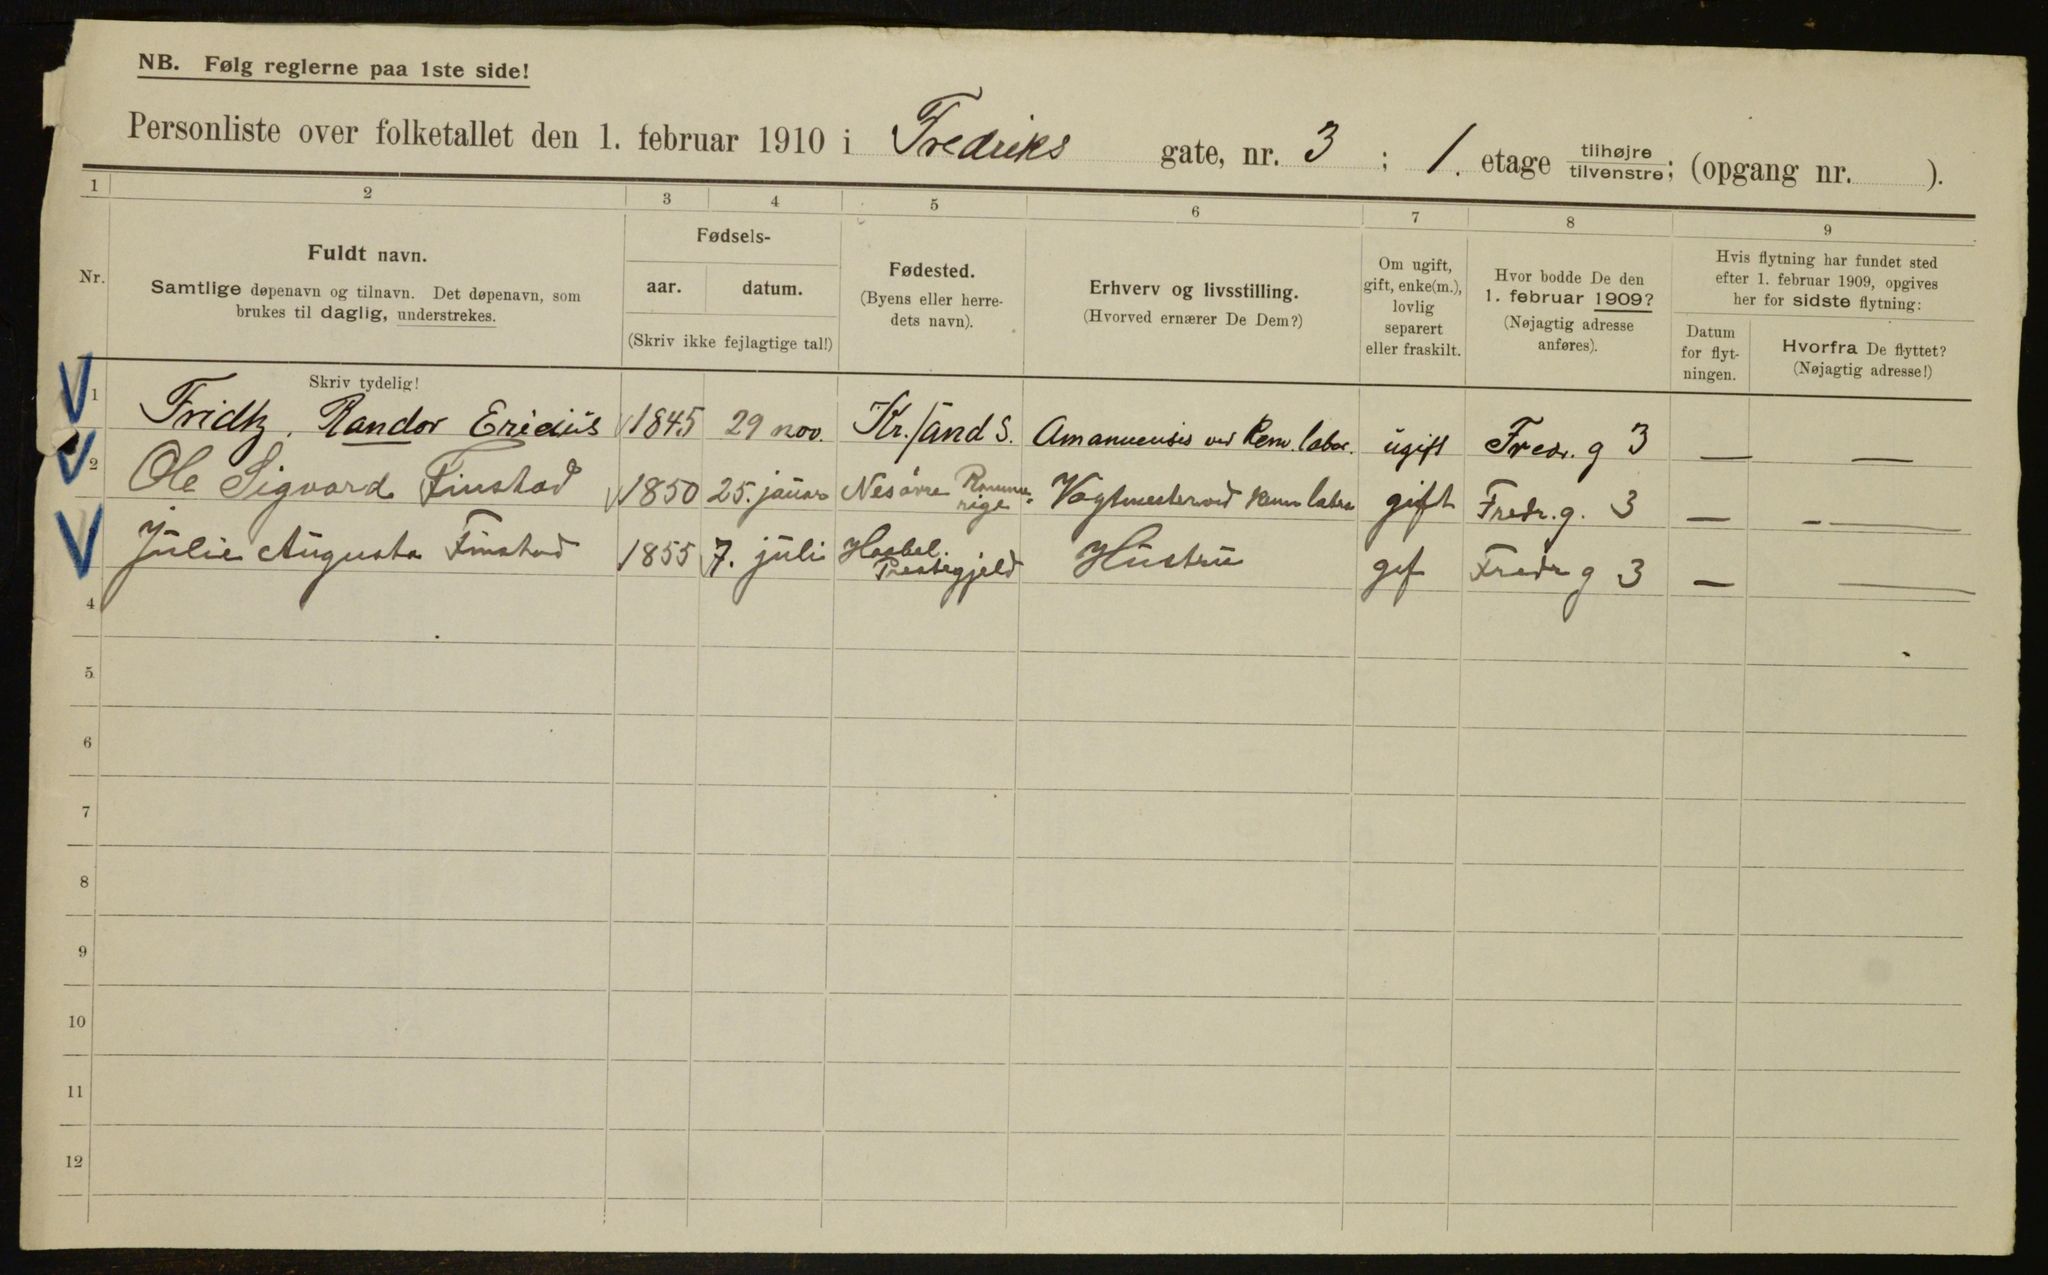 NB. Følg reglerne paa 1ste side!
Personliste over folketallet den 1. februar 1910 i Fredriks gate, nr. 3 ; 1. etage tilhøjre tilvenstre; (opgang nr. ).
1 2 3 4 5 6 7 8 9
Nr.
Fuldt navn.
Samtlige døpenavn og tilnavn. Det døpenavn, som
brukes til daglig, understrekes.
Fødsels-
aar. datum.
(Skriv ikke fejlagtige tal!)
Fødested.
(Byens eller herre-
dets navn).
Erhverv og livsstilling.
(Hvorved ernærer De Dem?)
Om ugift,
gift, enke(m.),
lovlig
separert
eller fraskilt.
Hvor bodde De den
1. februar 1909?
(Nøjagtig adresse
anføres).
Hvis flytning har fundet sted
efter 1. februar 1909, opgives
her for sidste flytning:
Datum
for flyt-
ningen.
Hvorfra De flyttet?
(Nøjagtig adresse!)
Skriv tydelig!
1 Fridtz, Randor Ericius 1845 29 nov. Kr.sand S. Amanuensis ved Kem. labor. ugift Fredr. g 3 — —
2 Ole Sigvard Finstad 1850 25. januar Nes øvre Romme-
rige Vagtmester ved Kem labra gift Fredr. g. 3 — —
Julie Augusta Finstad 1855 7. juli Haabel
Prestegjeld Hustru gif Fredr g 3 — —
4
5
6
7
8
9
10
11
12